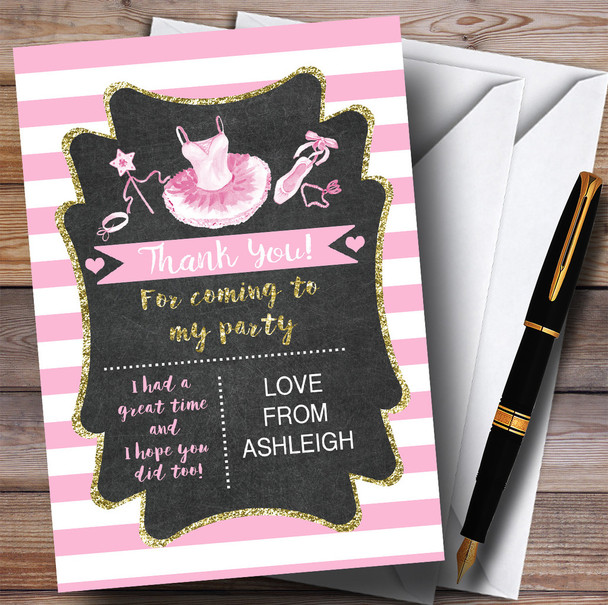 Thank You!
For coming to
my party
I had a
great time
and
I hope you
did too!
LOVE
FROM
ASHLEIGH